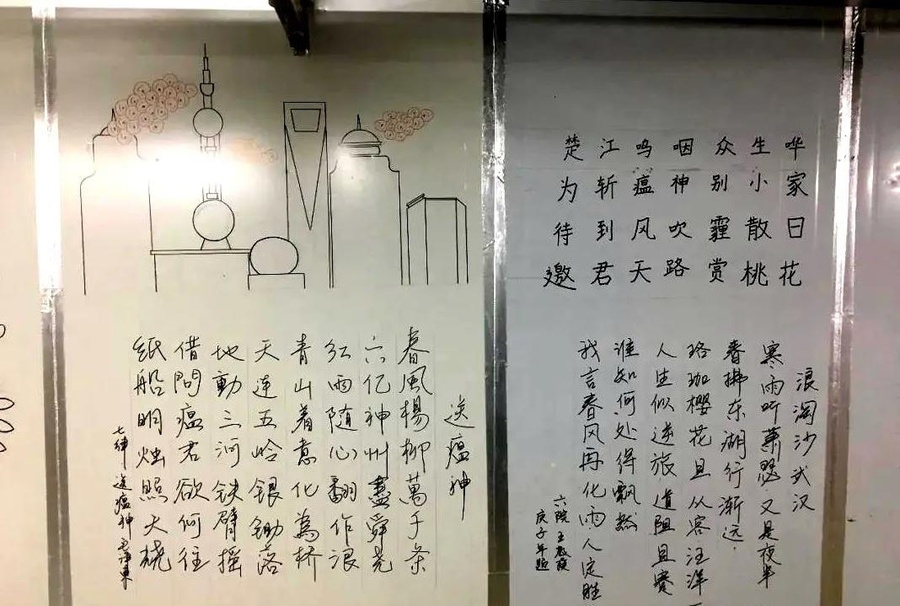 送瘟神
春風楊柳萬千条
六亿神州盡舜尧
红雨随心翻作浪
青山着意化為桥
天连五岭银锄落
地動三河铁臂摇
借問瘟君欲何往
紙船明烛照天烧
七律 送瘟神 毛泽東
楚江呜咽众生哗
为斩瘟神别小家
待到风吹霾散日
邀君天路赏桃花
浪淘沙武汉
寒雨听萧瑟.又是夜半
春拂东湖行渐远.
珞珈樱花且从容汪洋
人生似逆旅道阻且蹇
谁知何处得飘然
我言春风再化雨人定胜
六院 王
庚子年题